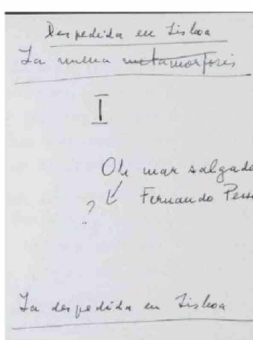 Despedida en Lisboa
La nueva metamorfosis
I
Oh mar salgado
Fernando Pess
?
La despedida en Lisboa